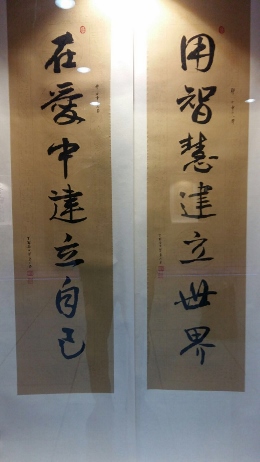 用智慧建立世界
在愛中建立自己